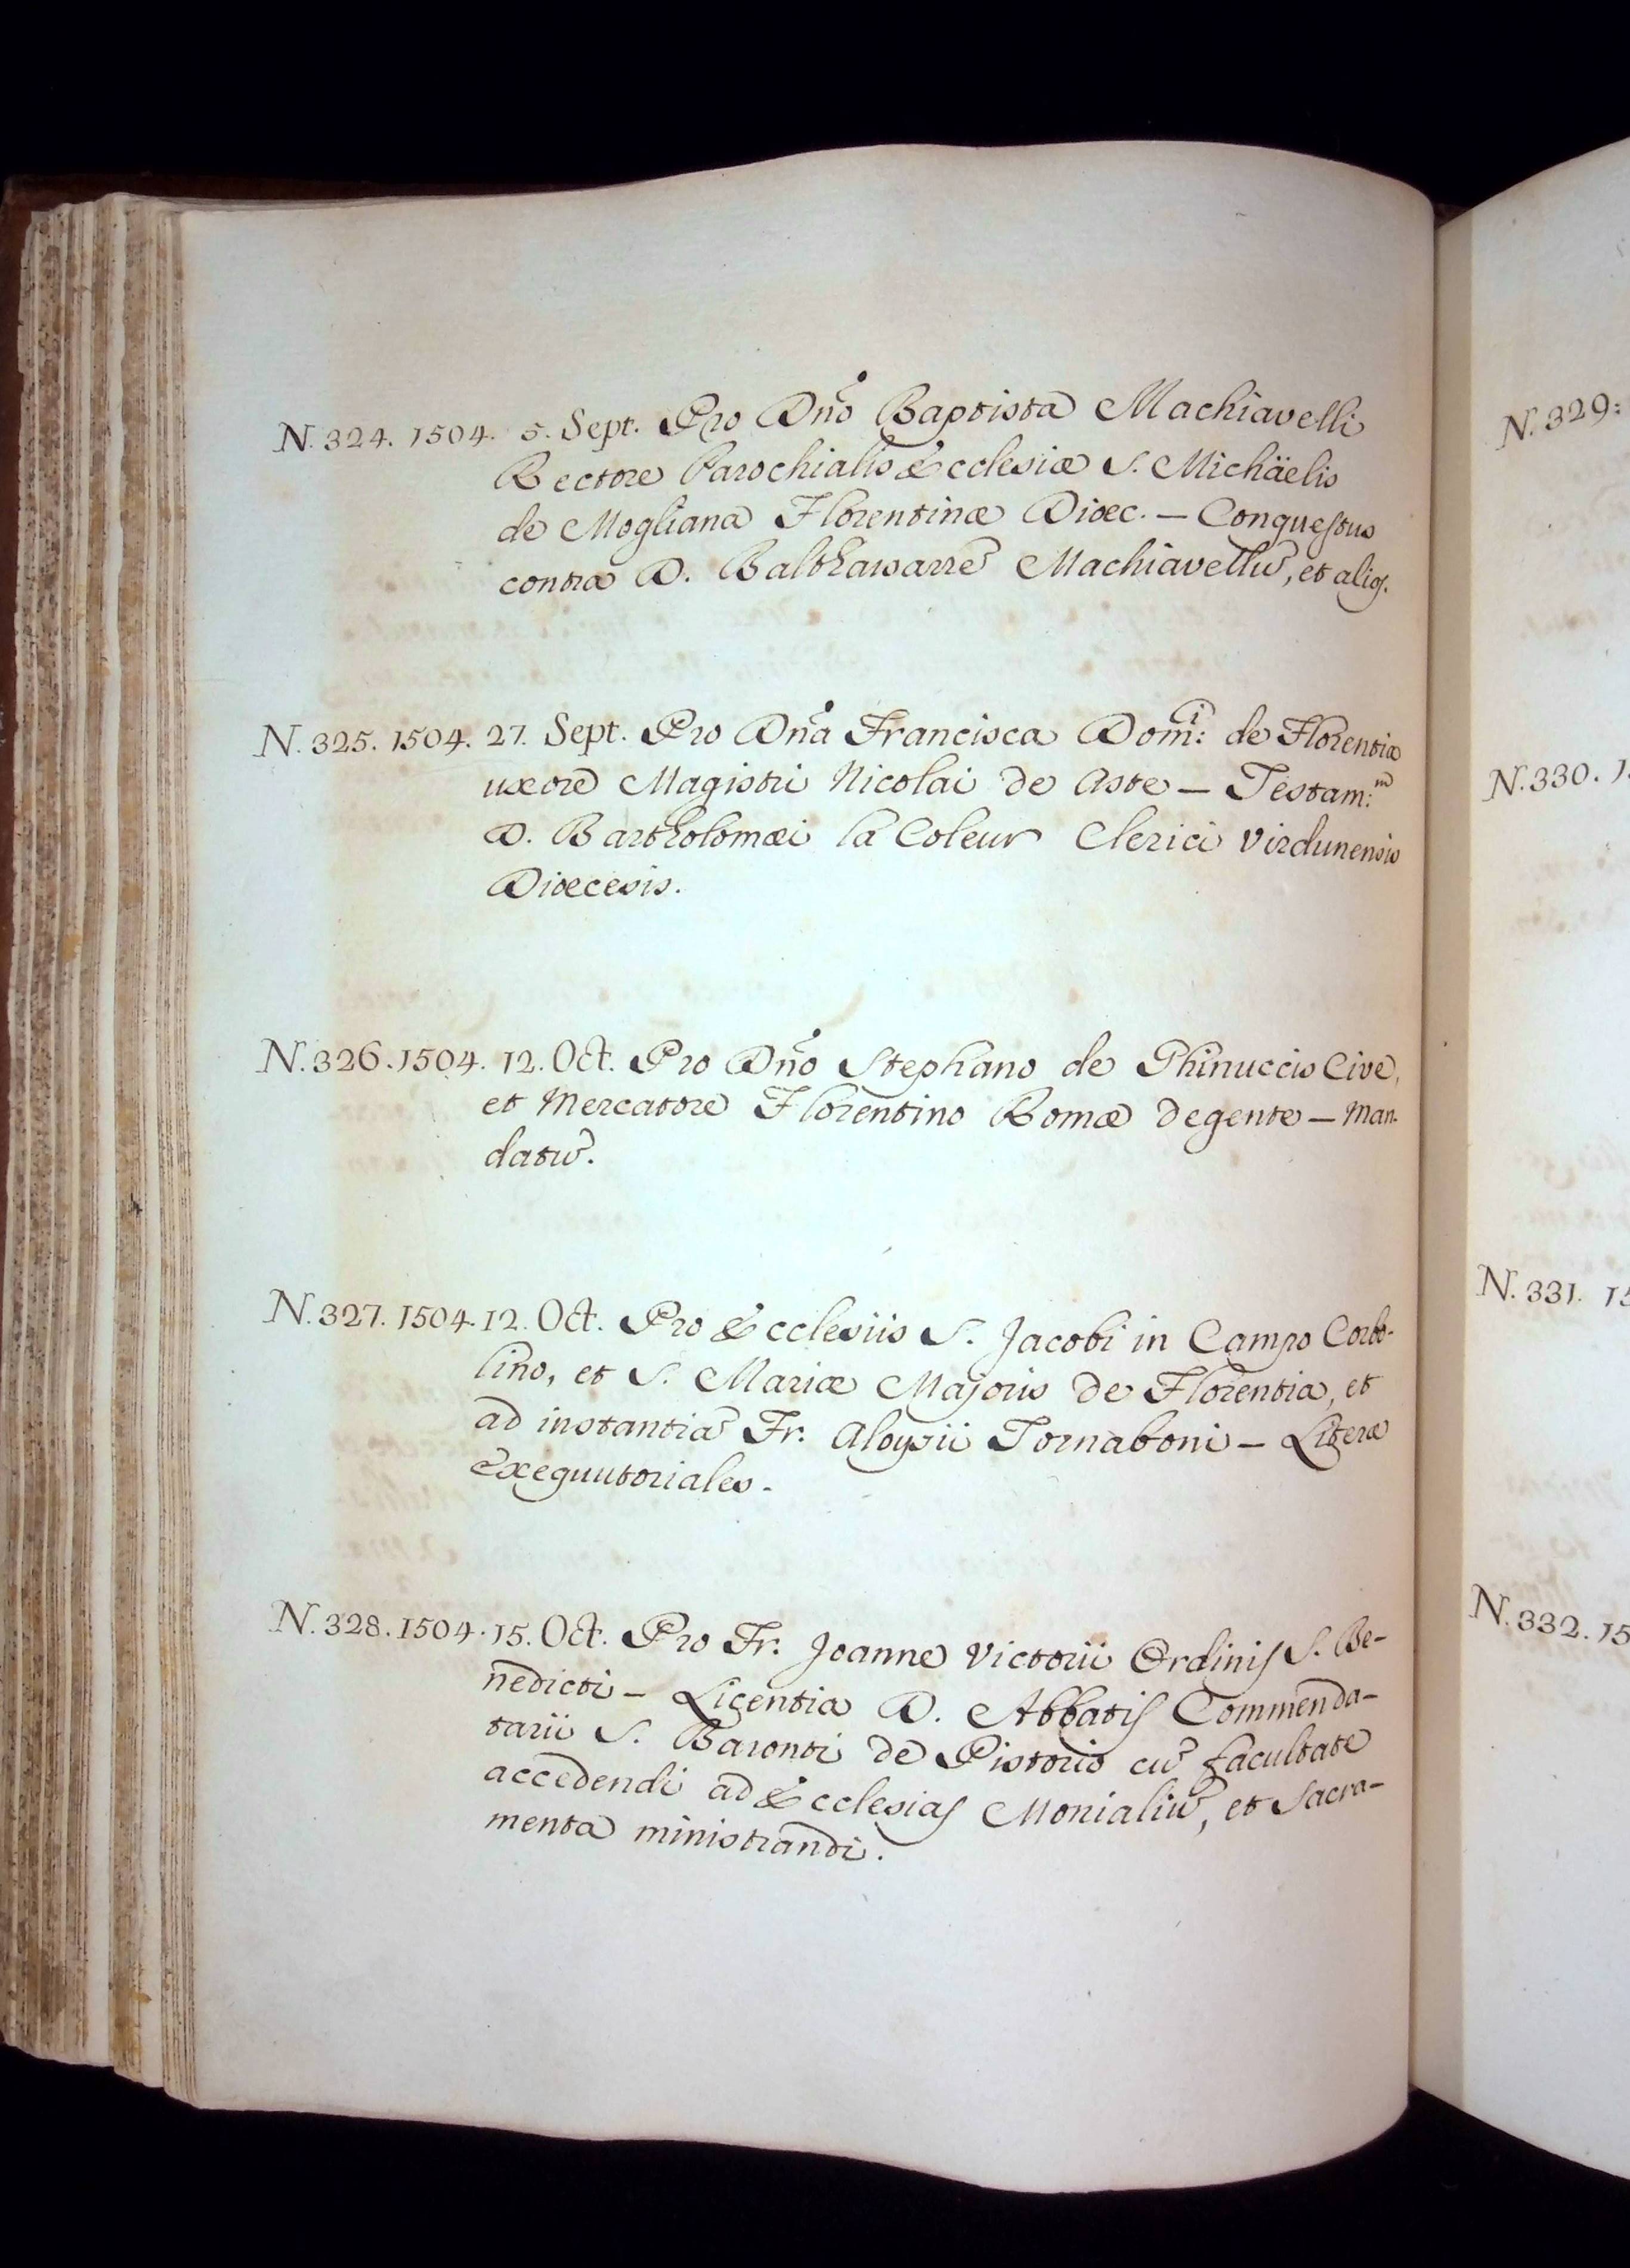 N. 324. 1504. 5. Sept. Pro Dño Baptista Machiavelli
Rectore Parochialis Ecclesiæ S. Michäelis
de Mogliana Florentinæ Diœc. – Conquestus
contra D. Balthassarrē Machiavellū, et alios.
N. 325. 1504. 27. Sept. Pro Dña Francisca Dom̃i: de Florentia
uxore Magistri Nicolai de Aste – Testam:m
D. Bartholomæi la Coleur Clerici Virdunensis
Diœcesis.
N. 326. 1504. 12. Oct. Pro Dño Stephano de Ghinuccis Cive,
et Mercatore Florentino Romæ degente – Man-
datū.
N. 327. 1504. 12. Oct. Pro Ecclesiis S. Jacobi in Campo Corbo-
lino, et S. Mariæ Majoris de Florentia, et
ad instantiā Fr. Aloysii Tornaboni – Literæ
exequutoriales.
N. 328. 1504. 15. Oct. Pro Fr. Joanne Victorii Ordinis S. Be-
nedicti – Licentia D. Abbatis Commenda-
tarii S. Baronti de Pistorio cū facultate
accedendi ad Ecclesias Monialiū, et Sacra-
menta ministrandi.
N. 329:
N. 330. 1
N. 331. 15
N. 332. 15